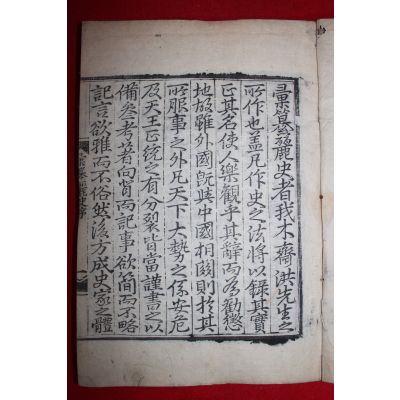 彙纂麗史者我木齋洪先生之
所作也盖凡作史之法將以錄其實
正其名使人樂觀乎其辭而為勸懲
地故雖外國旣與中國相關則於其
所服事之外凡天下大勢之係安危
及天王正統之有分裂皆當謹書之以
備叅考著向背而記事欲簡而不略
記言欲雅而不俗然後方成史家之體
彙纂麗史序